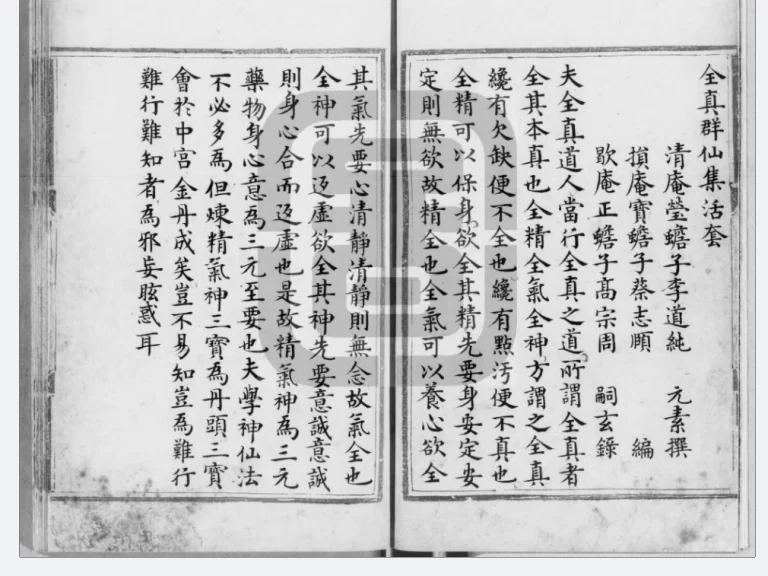 全真群仙集活套
清庵瑩蟾子李道純　元素撰
損庵寶蟾子蔡志頤　編
歇庵正蟾子高宗周　嗣玄錄
夫全真道人當行全真之道所謂全真者
全其本真也全精全氣全神方謂之全真
纔有欠缺便不全也纔有點汚便不真也
全精可以保身欲全其精先要身安定安
定則無欲故精全也全氣可以養心欲全
其氣先要心清靜清靜則無念故氣全也
全神可以返虛欲全其神先要意誠意誠
則身心合而返虛也是故精氣神爲三元
藥物身心意爲三元至要也夫學神仙法
不必多爲但煉精氣神三寶爲丹頭三寶
會於中宮金丹成矣豈不易知豈爲難行
難行難知者爲邪妄眩惑耳